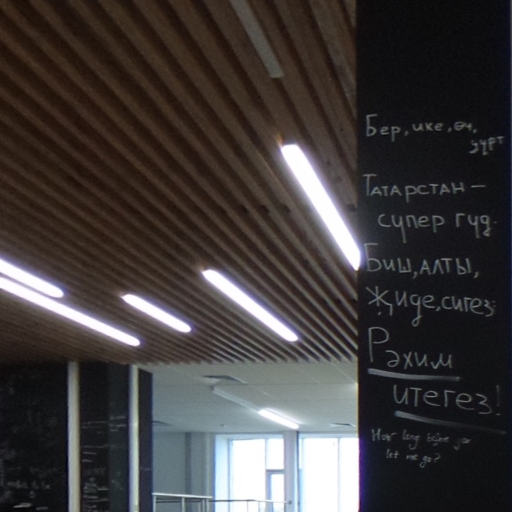 Бер, ике, өч,
дүрт
Татарстан —
супер гуд.
Биш, алты,
Җиде, сигез
Рәхим
итегез!
How long before you
let me go?